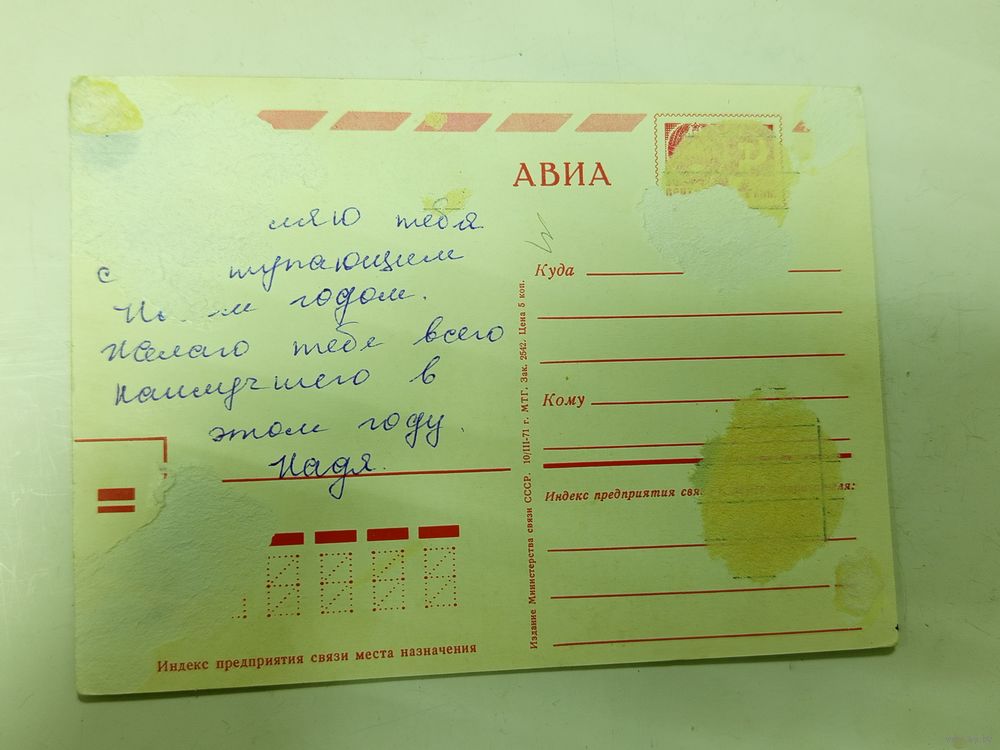 АВИА
ляю тебя
с тупающим
годом.
Желаю тебе всего
наилучшего в
этом году.
Надя.
Куда
Кому
Индекс предприятия
Издание Министерства связи СССР. 10/III-71 г. МТГ. Зак. 2542. Цена 5 коп.
Индекс предприятия связи места назначения